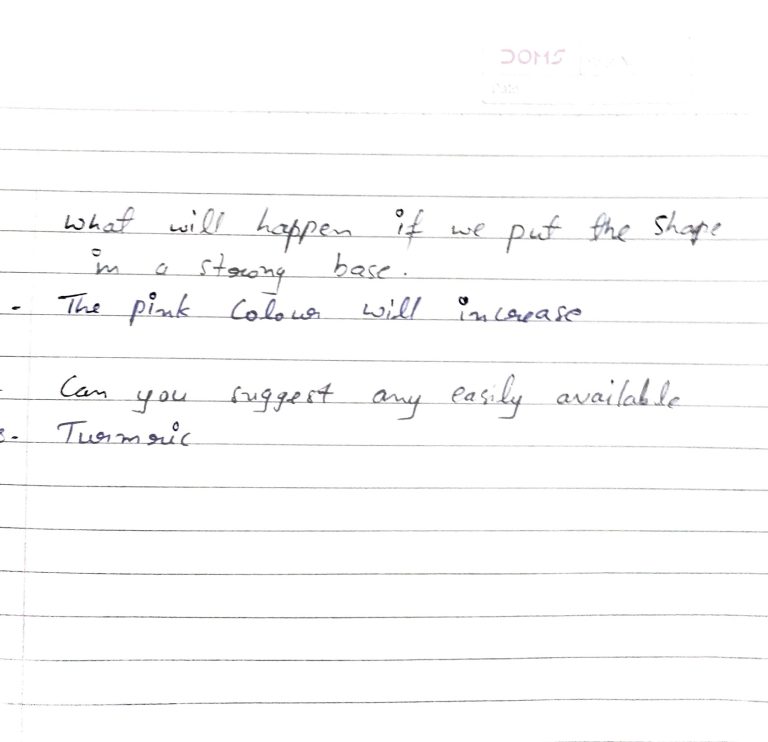 What will happen if we put the shape
in a strong base.
- The pink Colour will increase
Can you suggest any easily available
- Turmeric